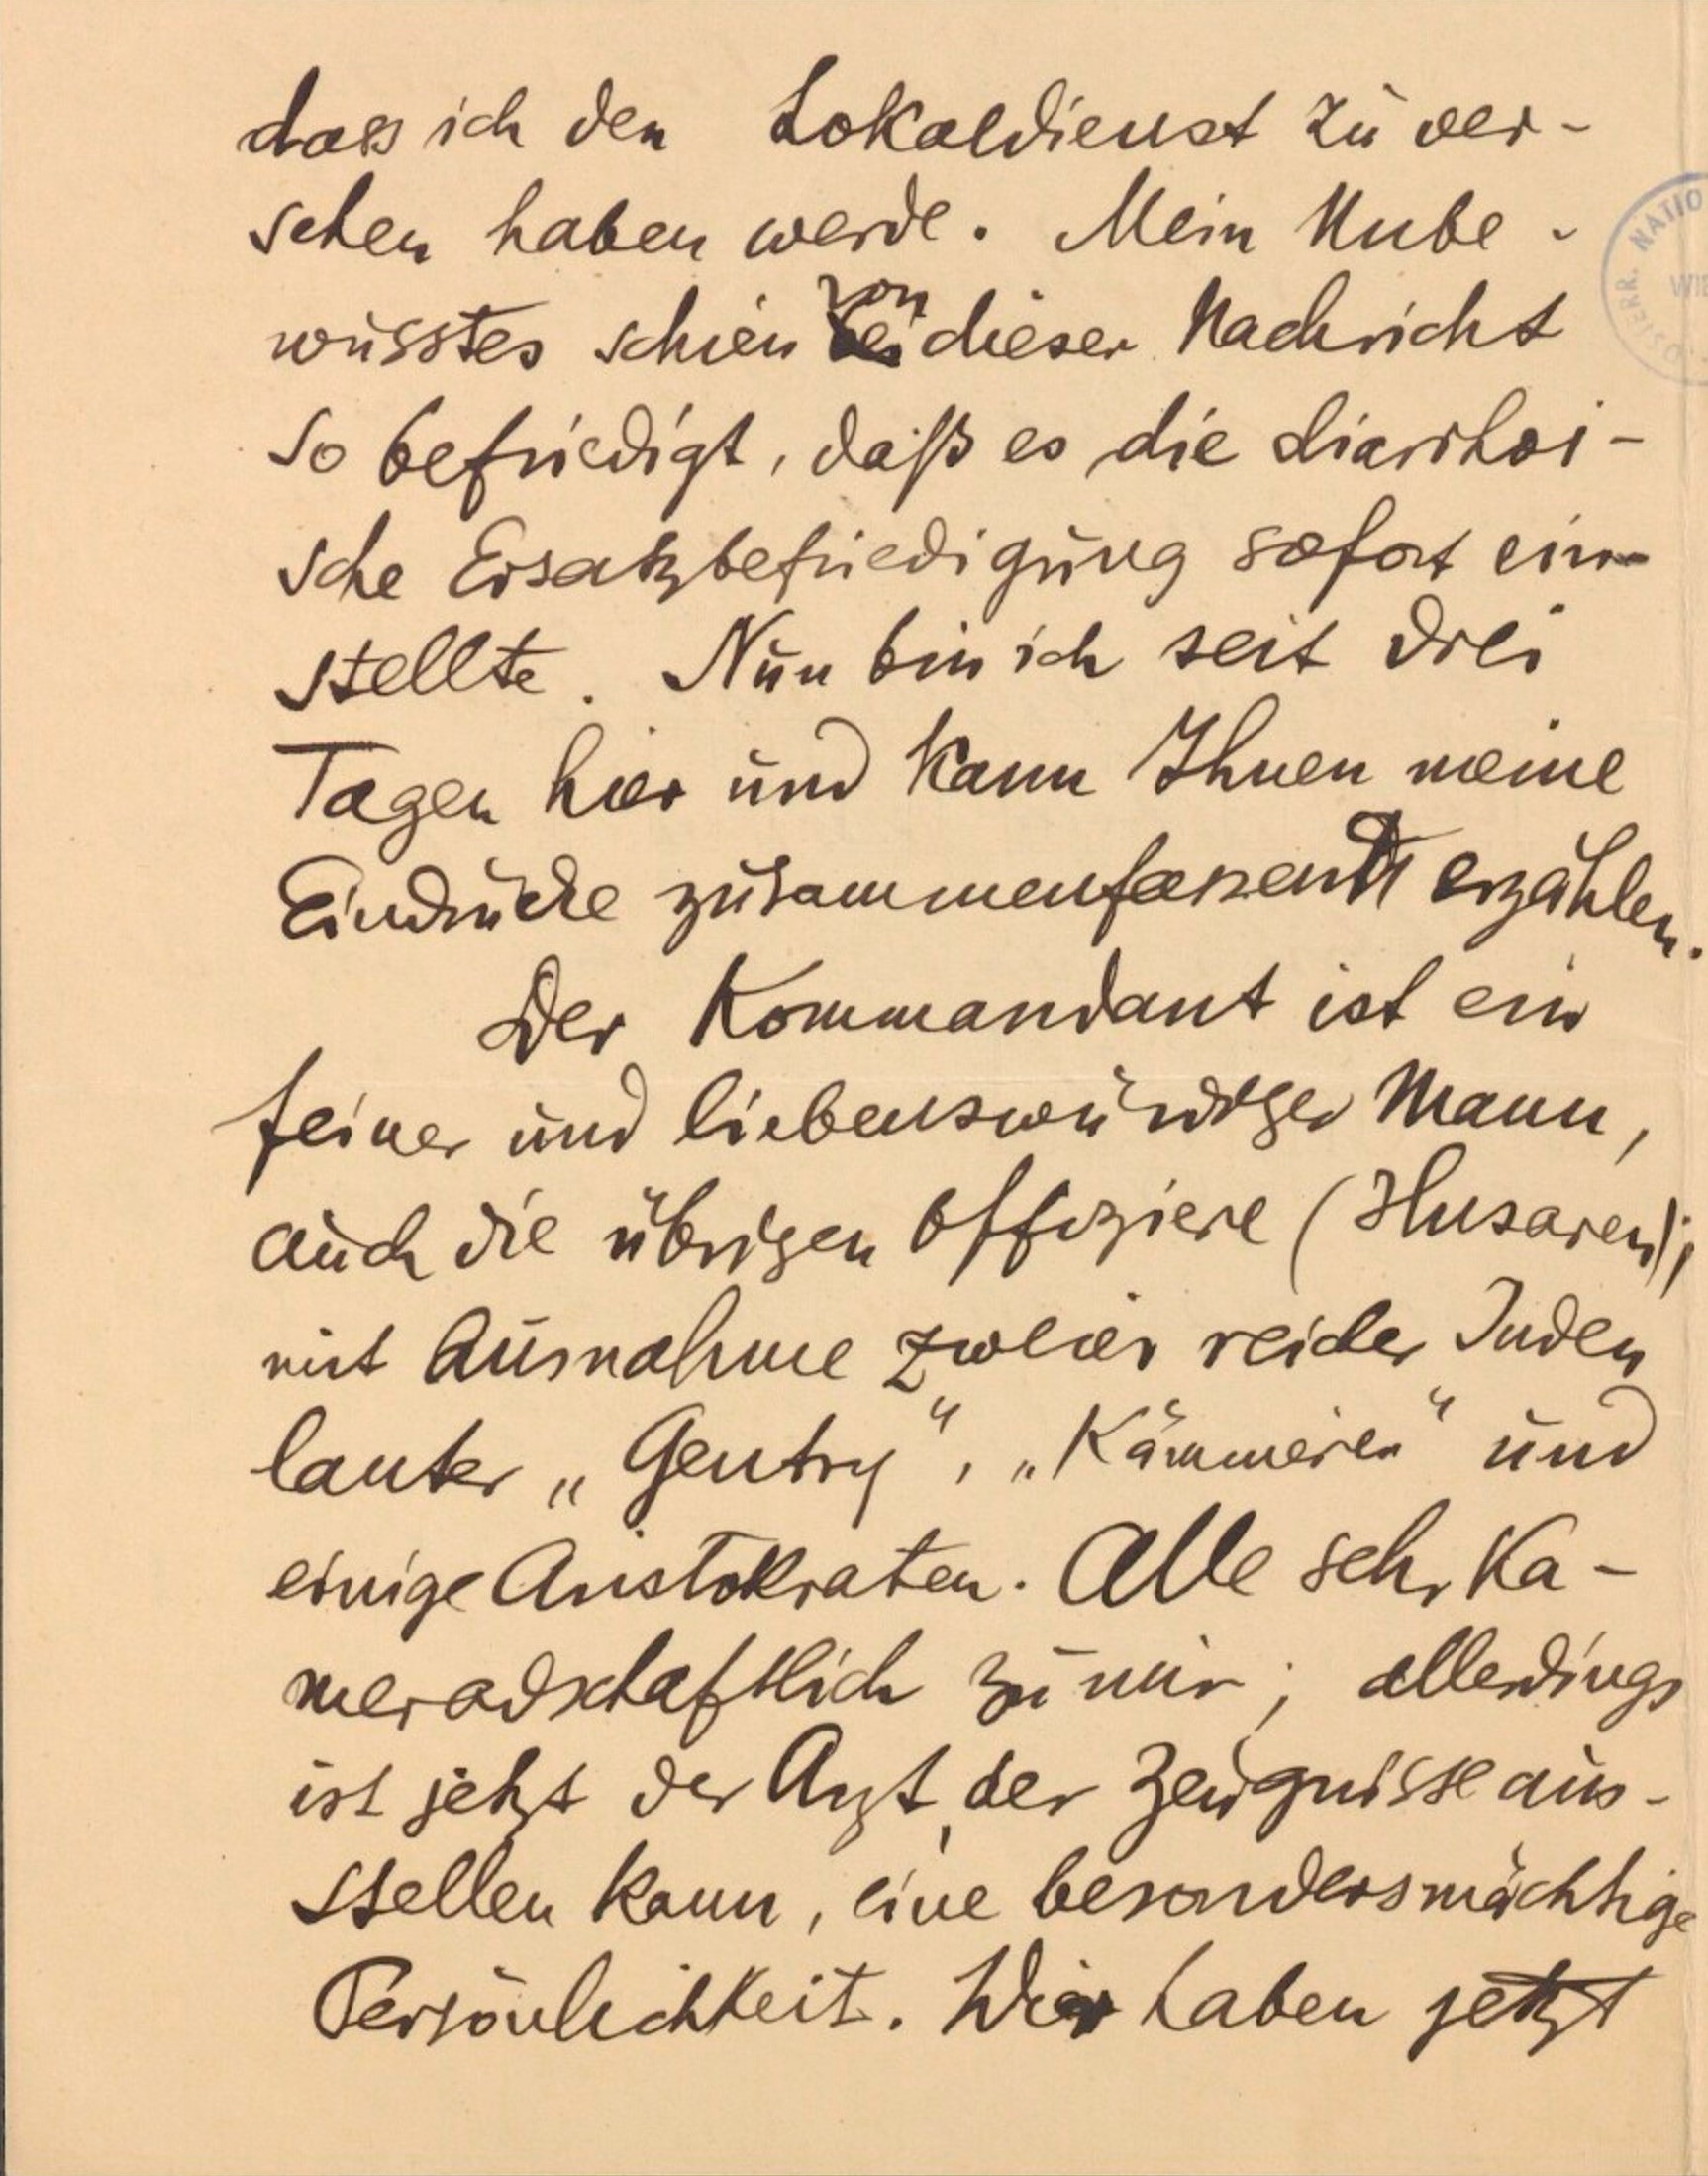 dass ich den Lokaldienst zu ver-
sehen haben werde. Mein Unbe-
wusstes schien von dieser Nachricht
so befriedigt, daß es die diarrhoi-
sche Ersatzbefriedigung sofort ein-
stellte. Nun bin ich seit drei
Tagen hier und kann Ihnen meine
Eindrücke zusammenfassend erzählen.
Der Kommandant ist ein
feiner und liebenswürdiger Mann,
auch die übrigen Offiziere (Husaren);
mit Ausnahme zweier reicher Juden
lauter „Gentry“, „Kämmerer“ und
einige Aristokraten. Alle sehr ka-
meradschaftlich zu mir; allerdings
ist jetzt der Arzt, der Zeugnisse aus-
stellen kann, eine besonders mächtige
Persönlichkeit. Wir haben jetzt
ÖSTERR. NATIO
WIE